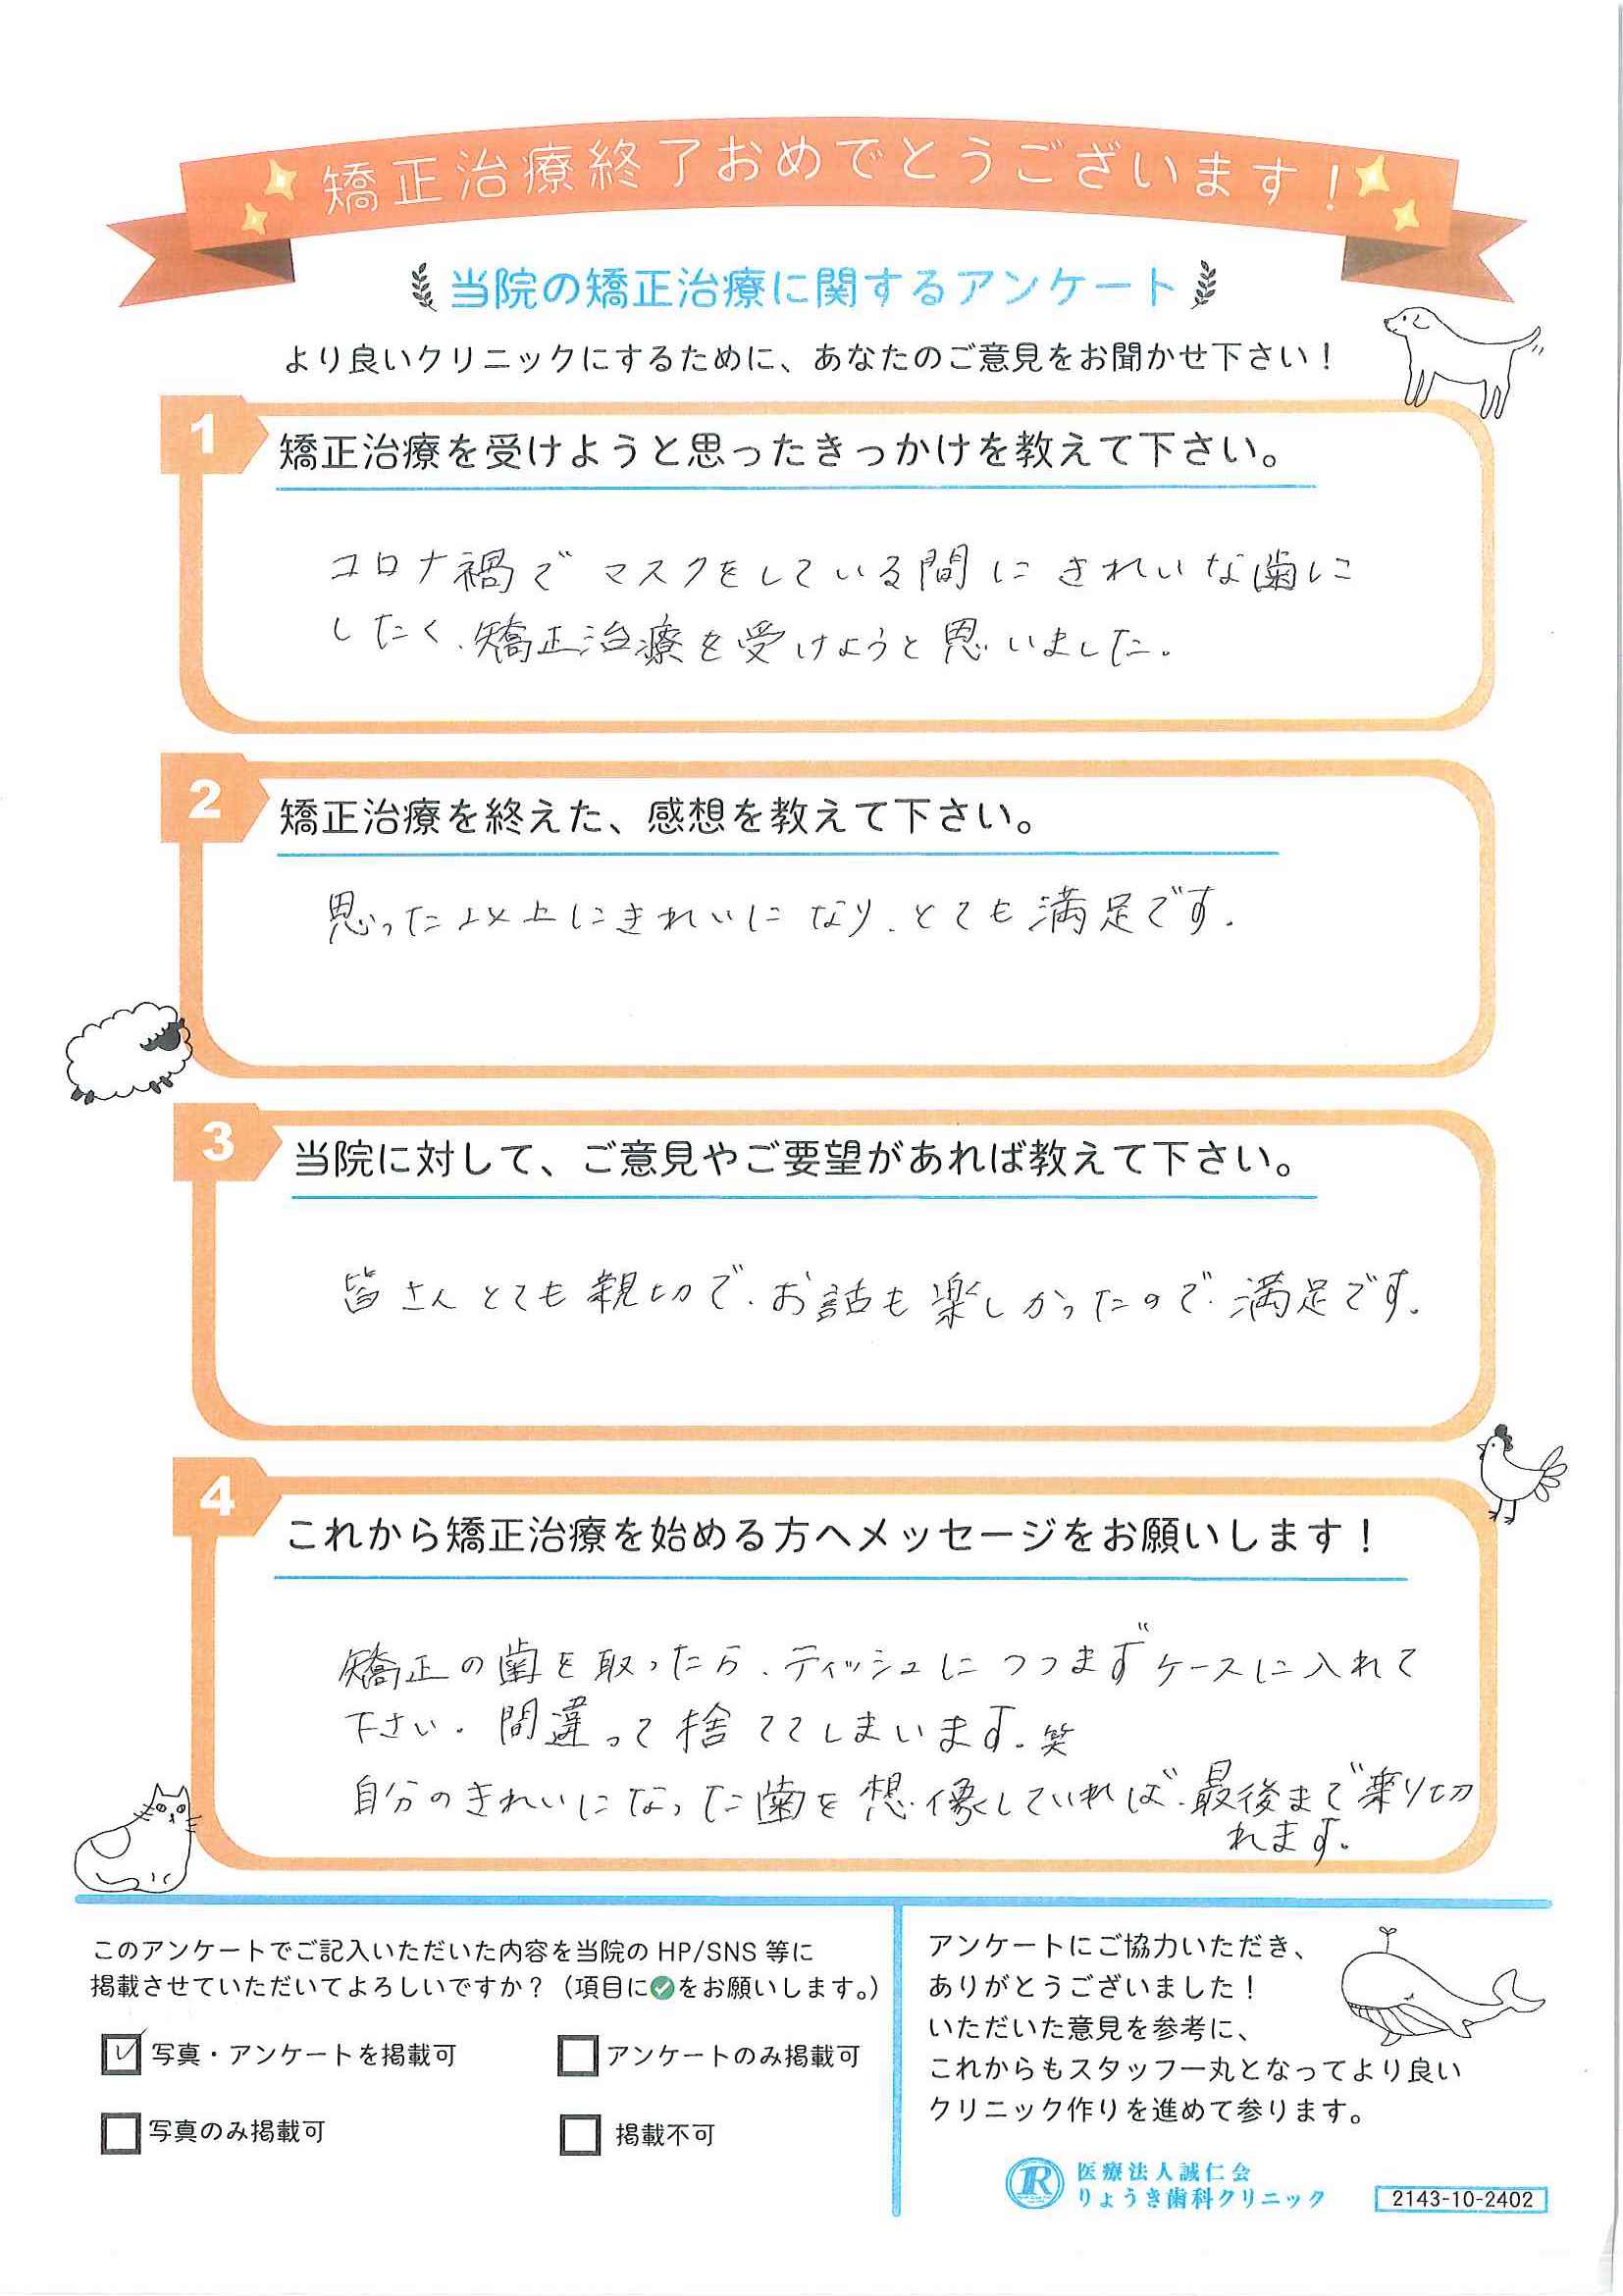 矯正治療終了おめでとうございます！
当院の矯正治療に関するアンケート
より良いクリニックにするために、あなたのご意見をお聞かせ下さい！
1
矯正治療を受けようと思ったきっかけを教えて下さい。
コロナ禍で マスクをしている間に きれいな歯に
したく、矯正治療を受けようと思いました。
2
矯正治療を終えた、感想を教えて下さい。
思った以上にきれいに なり、とても満足です。
3
当院に対して、ご意見やご要望があれば教えて下さい。
皆さん とても 親切で、お話も楽しかったので、満足です。
4
これから矯正治療を始める方へメッセージをお願いします！
矯正の歯を取ったら、ティッシュに つつまず ケースに入れて
下さい。間違って捨ててしまいます。笑
自分のきれいになった歯を想像していれば、最後まで乗り切
れます。
このアンケートでご記入いただいた内容を当院の HP/SNS 等に
掲載させていただいてよろしいですか？（項目に✓をお願いします。）
✓ 写真・アンケートを掲載可
アンケートのみ掲載可
写真のみ掲載可
掲載不可
アンケートにご協力いただき、
ありがとうございました！
いただいた意見を参考に、
これからもスタッフ一丸となってより良い
クリニック作りを進めて参ります。
R
医療法人誠仁会
りょうき歯科クリニック
2143-10-2402